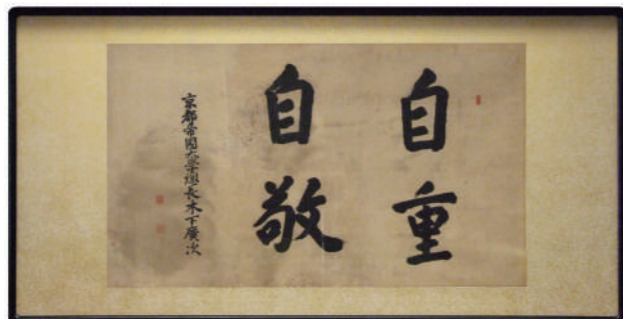 自重
自敬
京都帝國大学總長木下廣次